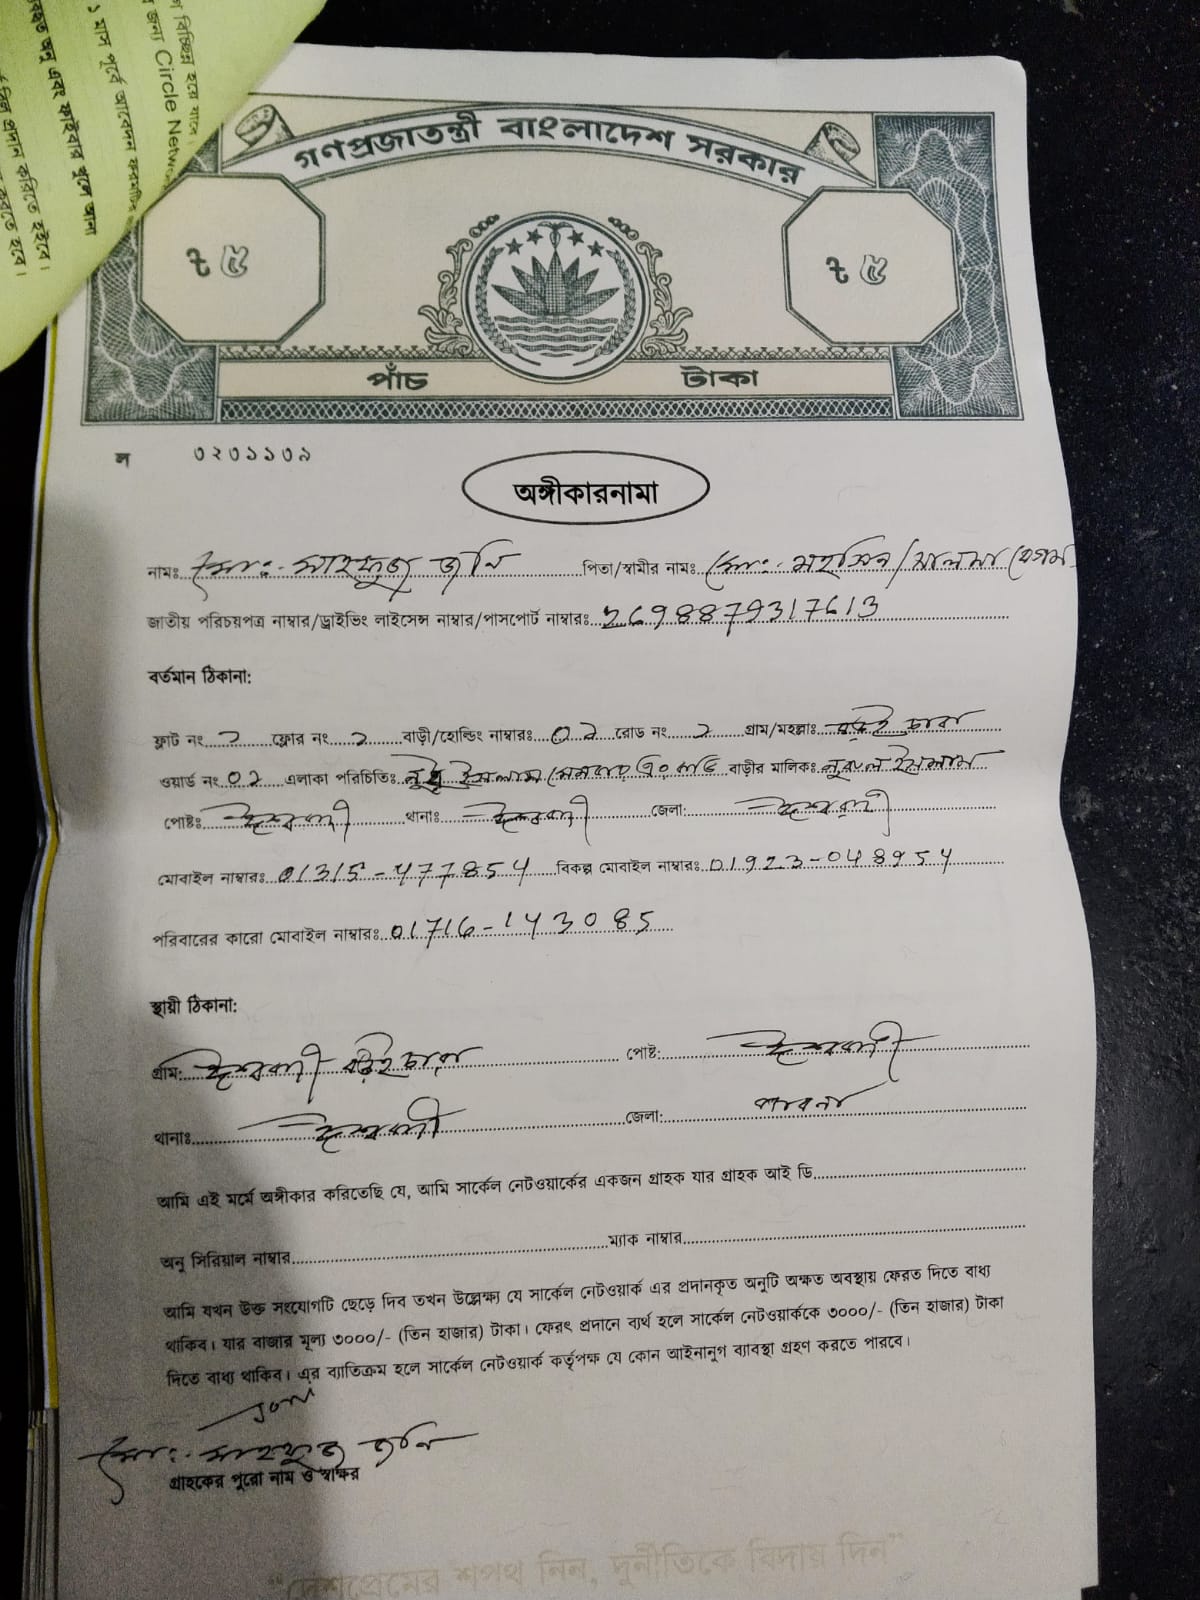 ণ বিচ্ছিন্ন হয়ে যাবে।
জন্য Circle Netw
১ মাস পূর্বে আবেদন
অনু এবং ফাইবার খুলে আনা
প্রদান করিতে হইবে।
করতে হবে।
গণপ্রজাতন্ত্রী বাংলাদেশ সরকার
৳ ৫
৳ ৫
পাঁচ টাকা
ল ৩২৩১১৩৯
অঙ্গীকারনামা
নামঃ মোঃ মাহফুজ জনি পিতা/স্বামীর নামঃ মোঃ মহসিন/সালমা বেগম
জাতীয় পরিচয়পত্র নাম্বার/ড্রাইভিং লাইসেন্স নাম্বার/পাসপোর্ট নাম্বারঃ 2698879317613
বর্তমান ঠিকানা:
ফ্লাট নং ২ ফ্লোর নং ২ বাড়ী/হোল্ডিং নাম্বারঃ ০২ রোড নং ২ গ্রাম/মহল্লাঃ বড়ইচারা
ওয়ার্ড নং ০২ এলাকা পরিচিতিঃ ইসলাম বাড়ীর মালিকঃ নুরুল ইসলাম
পোষ্টঃ ঈশ্বরদী থানাঃ ঈশ্বরদী জেলা: ঈশ্বরদী
মোবাইল নাম্বারঃ 01315-477854 বিকল্প মোবাইল নাম্বারঃ 01923-048954
পরিবারের কারো মোবাইল নাম্বারঃ 01716-143085
স্থায়ী ঠিকানা:
গ্রাম: ঈশ্বরদী বড়ইচারা পোষ্ট: ঈশ্বরদী
থানাঃ ঈশ্বরদী জেলা: পাবনা
আমি এই মর্মে অঙ্গীকার করিতেছি যে, আমি সার্কেল নেটওয়ার্কের একজন গ্রাহক যার গ্রাহক আই ডি
অনু সিরিয়াল নাম্বার ম্যাক নাম্বার
আমি যখন উক্ত সংযোগটি ছেড়ে দিব তখন উল্লেক্ষ্য যে সার্কেল নেটওয়ার্ক এর প্রদানকৃত অনুটি অক্ষত অবস্থায় ফেরত দিতে বাধ্য
থাকিব। যার বাজার মূল্য ৩০০০/- (তিন হাজার) টাকা। ফেরৎ প্রদানে ব্যর্থ হলে সার্কেল নেটওয়ার্ককে ৩০০০/- (তিন হাজার) টাকা
দিতে বাধ্য থাকিব। এর ব্যাতিক্রম হলে সার্কেল নেটওয়ার্ক কর্তৃপক্ষ যে কোন আইনানুগ ব্যাবস্থা গ্রহণ করতে পারবে।
Joni
মোঃ মাহফুজ জনি
গ্রাহকের পুরো নাম ও স্বাক্ষর
"দেশপ্রেমের শপথ নিন, দুর্নীতিকে বিদায় দিন"